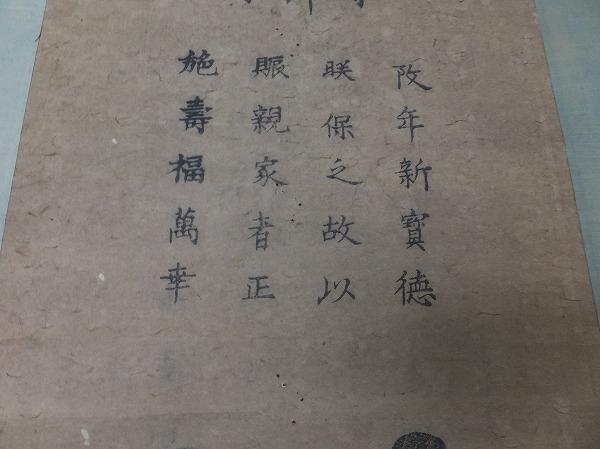 攺年新寳德
朕保之故以
賑親家者正
施壽福萬幸